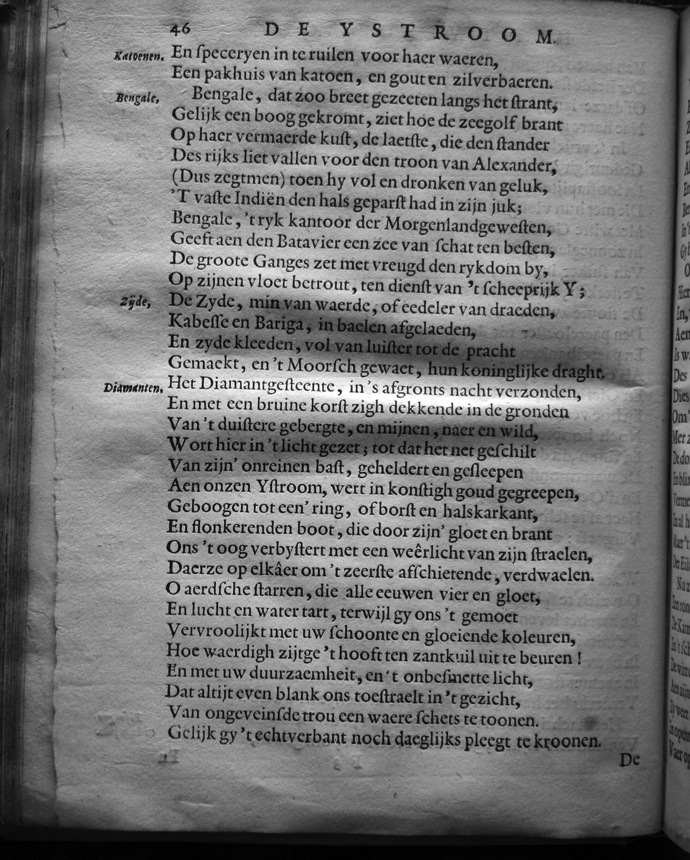 46 DE YSTROOM.
Katoenen. En ſpeceryen in te ruilen voor haer waeren,
Een pakhuis van katoen, en gout en zilverbaeren.
Bengale, Bengale, dat zoo breet gezeeten langs het ſtrant,
Gelijk een boog gekromt, ziet hoe de zeegolf brant
Op haer vermaerde kuſt, de laetſte, die den ſtander
Des rijks liet vallen voor den troon van Alexander,
(Dus zegtmen) toen hy vol en dronken van geluk,
'T vaſte Indiën den hals geparſt had in zijn juk;
Bengale, 't ryk kantoor der Morgenlandgeweſten,
Geeft aen den Batavier een zee van ſchatten beſten,
De groote Ganges zet met vreugd den rykdom by,
Op zijnen vloet betrout, ten dienſt van 't ſcheeprijk Y;
Zijde, De Zyde, min van waerde, of eedeler van draeden,
Kabeſſe en Bariga, in baelen afgelaeden,
En zyde kleeden, vol van luiſter tot de pracht
Gemaekt, en 't Moorſch gewaet, hun koninglijke draght.
Diamanten. Het Diamantgeſteente, in 's afgronts nacht verzonden,
En met een bruine korſt zigh dekkende in de gronden
Van 't duiſtere gebergte, en mijnen, naer en wild,
Wort hier in 't licht gezet; tot dat het net geſchilt
Van zijn' onreinen baſt, geheldert en geſleepen
Aen onzen Yſtroom, wert in konſtigh goud gegreepen,
Geboogen tot een' ring, of borſt en halskarkant,
En flonkerenden boot, die door zijn' gloet en brant
Ons 't oog verbyſtert met een weêrlicht van zijn ſtraelen,
Daerze op elkâer om 't zeerſte afſchietende, verdwaelen.
O aerdſche ſtarren, die alle eeuwen vier en gloet,
En lucht en water tart, terwijl gy ons 't gemoet
Vervroolijkt met uw ſchoonte en gloeiende koleuren,
Hoe waerdigh zijtge 't hooft ten zantkuil uit te beuren!
En met uw duurzaemheit, en 't onbeſmette licht,
Dat altijt even blank ons toeſtraelt in 't gezicht,
Van ongeveinſde trou een waere ſchets te toonen.
Gelijk gy 't echtverbant noch daeglijks pleegt te kroonen.
De